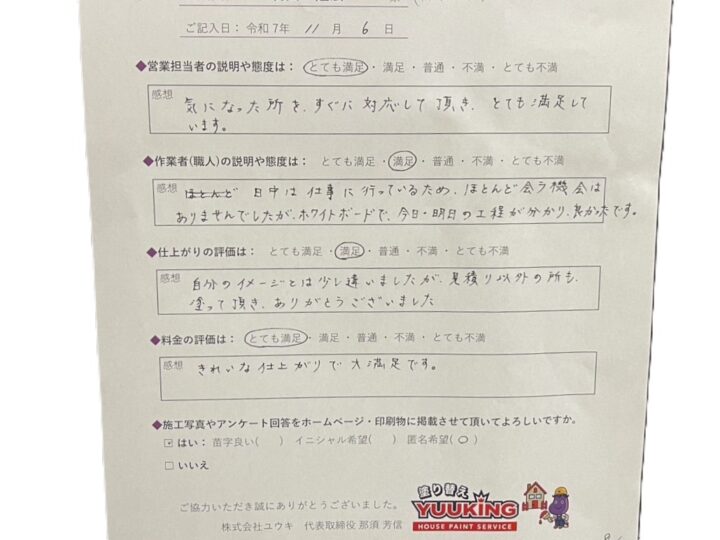 ご記入日: 令和7年 11 月 6 日
◆営業担当者の説明や態度は: とても満足・満足・普通・不満・とても不満
感想
気になった所を、すぐに対応して頂き、とても満足して
います。
◆作業者(職人)の説明や態度は: とても満足・満足・普通・不満・とても不満
感想 ほとんど 日中は仕事に行っているため、ほとんど会う機会は
ありませんでしたが、ホワイトボードで、今日・明日の工程が分かり、良かったです。
◆仕上がりの評価は: とても満足・満足・普通・不満・とても不満
感想 自分のイメージとは少し違いましたが、見積り以外の所も、
塗って頂き、ありがとうございました
◆料金の評価は: とても満足・満足・普通・不満・とても不満
感想 きれいな仕上がりで大満足です。
◆施工写真やアンケート回答をホームページ・印刷物に掲載させて頂いてよろしいですか。
はい: 苗字良い( ) イニシャル希望( ) 匿名希望(○)
□いいえ
ご協力いただき誠にありがとうございました。
株式会社ユウキ 代表取締役 那須 芳信
塗り替え
YUUKING
HOUSE PAINT SERVICE